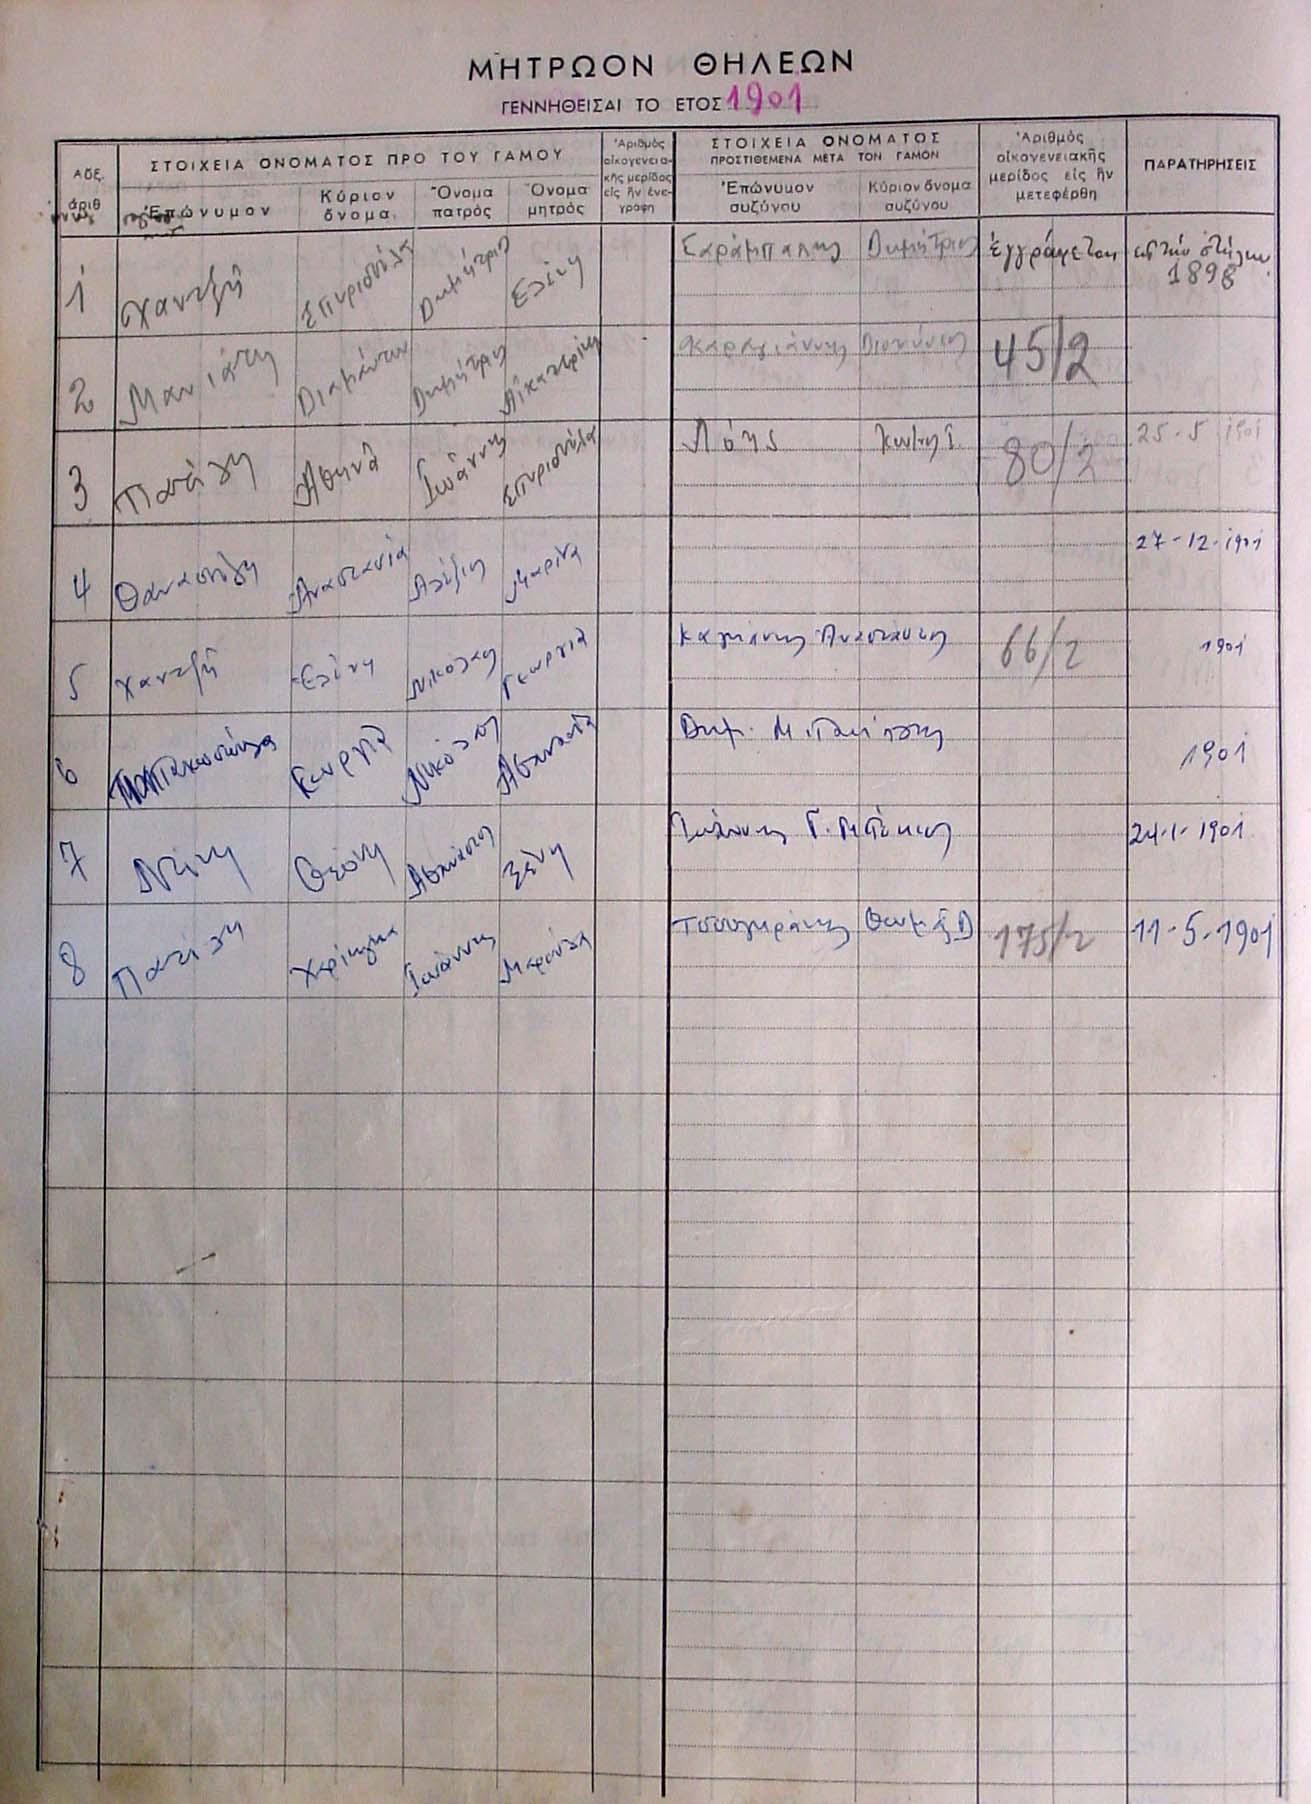 ΜΗΤΡΩΟΝ ΘΗΛΕΩΝ
ΓΕΝΝΗΘΕΙΣΑΙ ΤΟ ΕΤΟΣ 1901
Αὔξ. ἀριθ
ΣΤΟΙΧΕΙΑ ΟΝΟΜΑΤΟΣ ΠΡΟ ΤΟΥ ΓΑΜΟΥ
Ἐπώνυμον
Κύριον ὄνομα
Ὄνομα πατρὸς
Ὄνομα μητρὸς
Ἀριθμὸς οἰκογενεια-κῆς μερίδος εἰς ἣν ἐνε-γράφη
ΣΤΟΙΧΕΙΑ ΟΝΟΜΑΤΟΣ ΠΡΟΣΤΙΘΕΜΕΝΑ ΜΕΤΑ ΤΟΝ ΓΑΜΟΝ
Ἐπώνυμον συζύγου
Κύριον ὄνομα συζύγου
Ἀριθμὸς οἰκογενειακῆς μερίδος εἰς ἣν μετεφέρθη
ΠΑΡΑΤΗΡΗΣΕΙΣ
1 Χαντζῆ Σπυριδούλα Δημήτριος Ἑλένη Σαράμπαλης Δημήτριος ἐγγράφεται εἰς τὴν στήλην 1898
2 Μανιάτη Διαμάντω Δημήτριος Αἰκατερίνη Καραγιάννης Διονύσιος 45/2
3 Πατέλη Ἀθηνᾶ Ἰωάννης Σπυριδούλα Λόης 80/2 25-5-1901
4 Θανασούλη Ἀναστασία Ἀλέξιος Μαρίνα 27-12-1901
5 Χαντζῆ Ἑλένη Νικόλαος Γεωργία Ἀναστάσιος 66/2 1901
6 Γεωργία Νικόλαος Ἀθανασία Δημ. 1901
7 Ντίνη Θεώνη Ἀθανάσιος Ξένη Ἰωάννης Γ. 24-1-1901
8 Πατέλη Χαρίκλεια Ἰωάννης Μαρούλα Τσουγκράνης Θωμᾶς Δ 175/2 11-5-1901